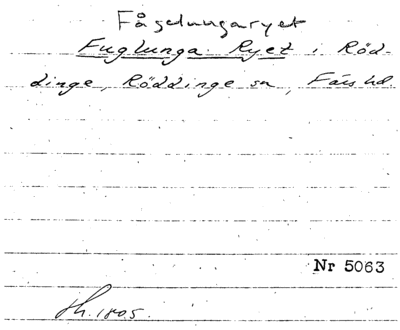 Fågelungaryet
Fuglunga Ryet i Röd-
dinge, Röddinge sn, Färs hd.
Nr 5063
Sk. 1805.